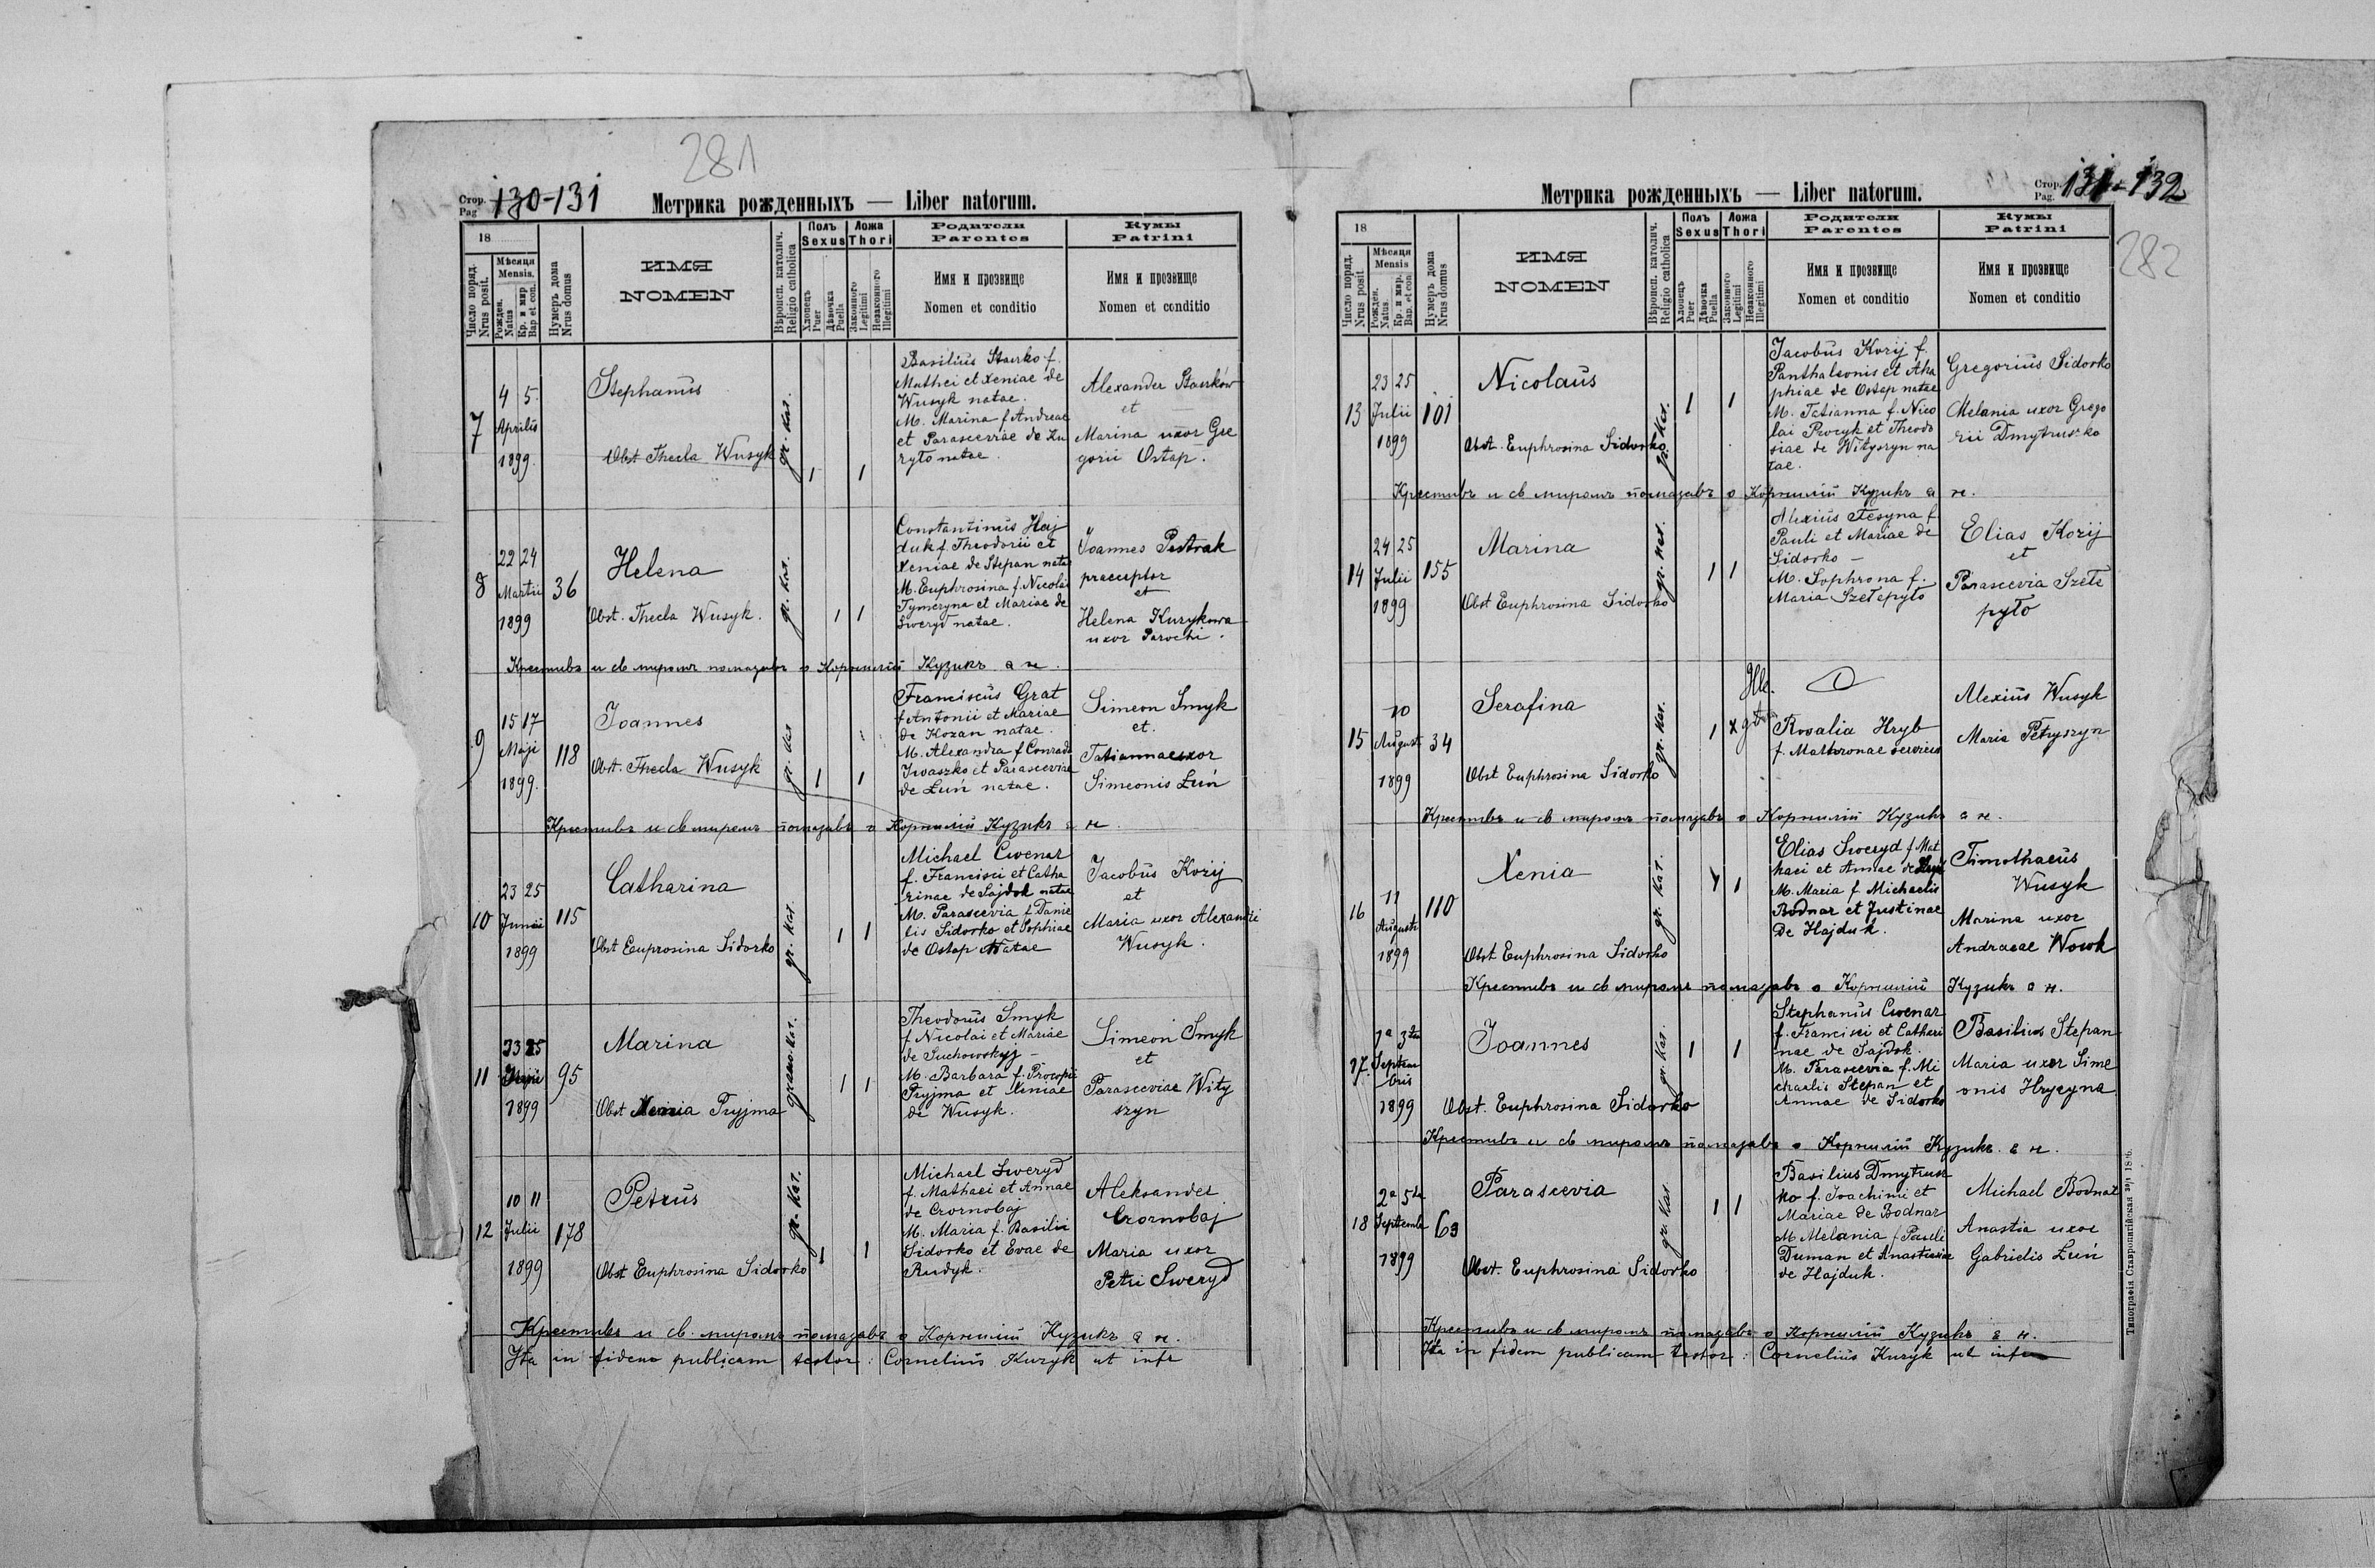 281
Стор. Pag 130-131
Метрика рожденныхъ — Liber natorum.
18
Число поряд. Nrus posit.
Мѣсяця Mensis.
Рожден. Natus
Кр. и мир Bap et con.
Нумеръ дома Nrus domus
ИМЯ
NOMEN
Вѣроисп. католич. Religio catholica
Полъ
Sexus
Хлопецъ Puer
Дѣвочка Puella
Ложа
Thori
Законного Legitimi
Незаконного Illegitimi
Родители
Parentes
Имя и прозвище
Nomen et conditio
Кумы
Patrini
Имя и прозвище
Nomen et conditio
7
4 5
Aprilis
1899.
Stephanus
Obst Thecla Wusyk
gr. kat.
1 1
Basilius Starko f.
Mathei et Xeniae de
Wusyk natae.
M. Marina f Andreae
et Parasceviae de Ku
ryło natae.
Alexander
et
Marina uxor Gre
gorii Ostap.
8
22 24
Martii
1899
36
Helena
Obst. Thecla Wusyk.
gr. kat.
1 1
Constantinus Haj
duk f. Theodorii et
Xeniae de Stepan natae
M. Euphrosina f. Nicolai
Tymeryna et Mariae de
Sweryd natae.
Joannes Pestrak
praeceptor
et
Helena Kuzykowa
uxor Parochi.
Крестивъ и св миромъ помазавъ о Корнилій Кузикъ а н.
9
15 17
Maji
1899.
118
Joannes
Obst. Thecla Wusyk
gr. kat
1 1
Franciscus Grat
f Antonii et Mariae
de Kozan natae.
M. Alexandra f Conradi
Iwaszko et Parasceviae
de Łuń natae.
Simeon Smyk
et.
Tatianna uxor
Simeonis Łuń
Крестивъ и св миромъ помазавъ о Корнилій Кузикъ а н
10
23 25
Junii
1899
115
Catharina
Obst Euprosina Sidorko
gr. kat.
1 1
Michael Cwenar
f. Francisci et Catha
rinae de Sajdok natae
M. Parascevia f Danie
lis Sidorko et Sophiae
de Ostap Natae
Jacobus Kozij
et
Maria uxor Alexandri
Wusyk.
11
23 25
1899
95
Marina
Obst Xenia Pryjma
1 1
Theodorus Smyk
f Nicolai et Mariae
de Suchowskyj –
M. Barbara f. Procopii
Pryjma et Xeniae
de Wusyk.
Simeon Smyk
et
Parasceviae Wity
szyn
12
10 11
Julii
1899
178
Petrus
Obst Euphrosina Sidorko
gr. kat.
1 1
Michael Sweryd
f. Mathaei et Annae
de Czornobaj
M. Maria f. Basilii
Sidorko et Evae de
Rudyk.
Aleksander
Czornobaj
Maria uxor
Petri Sweryd
Крестивъ и св. миромъ помазавъ о Корнилій Кузикъ а н.
Ita in fidem publicam testor: Cornelius Kuzyk ut infr
Стор. Pag. 131-132
282
Метрика рожденныхъ — Liber natorum.
18
Число поряд. Nrus posit.
Мѣсяця Mensis
Рожден. Natus
Кр. и мир. Bap. et con
Нумеръ дома Nrus domus
ИМЯ
NOMEN
Вѣроисп. католич. Religio catholica
Полъ
Sexus
Хлопецъ Puer
Дѣвочка Puella
Ложа
Thori
Законного Legitimi
Незаконного Illegitimi
Родители
Parentes
Имя и прозвище
Nomen et conditio
Кумы
Patrini
Имя и прозвище
Nomen et conditio
13
23 25
Julii
1899
101
Nicolaus
Obst. Euphrosina Sidorko
gr. kat.
1 1
Jacobus Kozij f.
Panthaleonis et Aha
phiae de Ostap natae
M. Tatianna f. Nico
lai Procyk et Theodo
siae de Wityszyn na
tae.
Gregorius Sidorko
Melania uxor Grego
rii Dmytrusko
Крестивъ и св миромъ помазавъ о Корнилій Кузикъ а н.
14
24 25
Julii
1899
155
Marina
Obst Euphrosina Sidorko
gr. kat.
1 1
Alexius f.
Pauli et Mariae de
Sidorko –
M. Sophrona f.
Maria Szełepyło
Elias Kozij
et
Parascevia Szełe
pyło
15
10
Augusti
1899
34
Serafina
Obst Euphrosina Sidorko
gr. kat.
1
Ille.
Rosalia Hryb
f. Mathronae
Alexius Wusyk
Maria Petryszyn
Крестивъ и св миромъ помазавъ о Корнилій Кузикъ а н.
16
11
Augusti
1899
110
Xenia
Obst Euphrosina Sidorko
gr. kat.
1 1
Elias Sweryd f Mat
haei et Annae de
M. Maria f Michaelis
Bodnar et Justinae
De Hajduk.
Timothaeus
Wusyk
Marina uxor
Andraeae Wowk
Крестивъ и св миромъ помазавъ о Корнилій Кузикъ а н.
17.
1a 3tia
Septem
bris
1899
Joannes
Obst. Euphrosina Sidorko
gr. kat.
1 1
Stephanus Cwenar
f. Francisci et Cathari
nae de Sajdok.
M. Parascevia f. Mi
chaelis Stepan et
Annae de Sidorko
Basilius Stepan
Maria uxor Sime
onis Hrycyna
Крестивъ и св миромъ помазавъ о Корнилій Кузикъ. а н.
18
2a 5ta
Septembr
1899
69
Parascevia
Obst. Euphrosina Sidorko
gr. kat.
1 1
Basilius Dmytrusz
ko f. Joachimi et
Mariae de Bodnar
M Melania f Pauli
Duman et Anastasiae
de Hajduk.
Michael Bodnar
Anastia uxor
Gabrielis Łuń
Крестивъ и св миромъ помазавъ о Корнилій Кузикъ а н.
Ita in fidem publicam testor: Cornelius Kuzyk ut infr
Типографія Ставропигійская